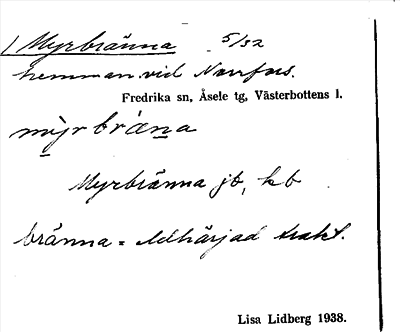 Myrbränna 5/32
hemman vid Norrfors.
Fredrika sn, Åsele tg, Västerbottens l.
Myrbränna jb, kb
bränna = eldhärjad trakt.
Lisa Lidberg 1938.